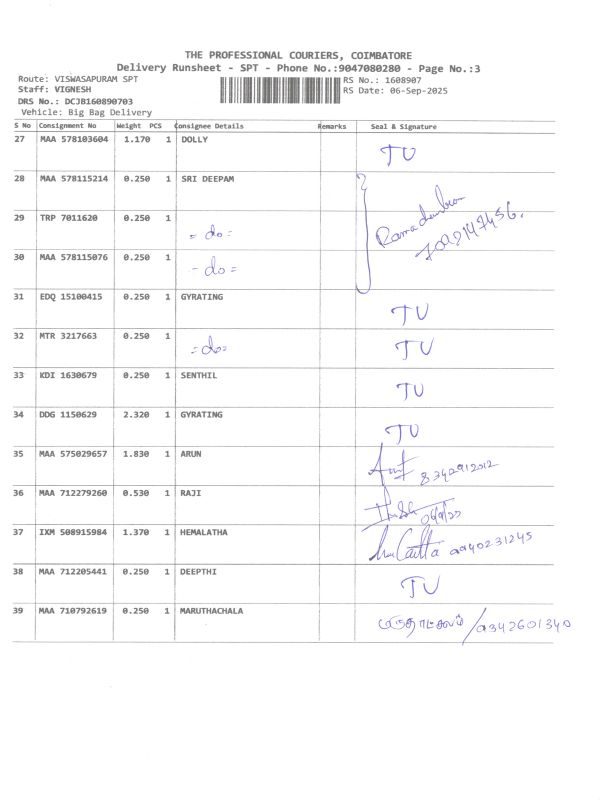 THE PROFESSIONAL COURIERS, COIMBATORE
Delivery Runsheet - SPT - Phone No.:9047080280 - Page No.:3
Route: VISWASAPURAM SPT
Staff: VIGNESH
DRS No.: DCJB160890703
Vehicle: Big Bag Delivery
RS No.: 1608907
RS Date: 06-Sep-2025
S No Consignment No Weight PCS Consignee Details Remarks Seal & Signature
27 MAA 578103604 1.170 1 DOLLY TU
28 MAA 578115214 0.250 1 SRI DEEPAM
29 TRP 7011620 0.250 1 = do =
30 MAA 578115076 0.250 1 - do =
31 EDQ 15100415 0.250 1 GYRATING TU
32 MTR 3217663 0.250 1 = do = TU
33 KDI 1630679 0.250 1 SENTHIL TU
34 DDG 1150629 2.320 1 GYRATING TU
35 MAA 575029657 1.830 1 ARUN
36 MAA 712279260 0.530 1 RAJI
37 IXM 508915984 1.370 1 HEMALATHA
38 MAA 712205441 0.250 1 DEEPTHI TU
39 MAA 710792619 0.250 1 MARUTHACHALA மருதாட்சலம் /9342601340